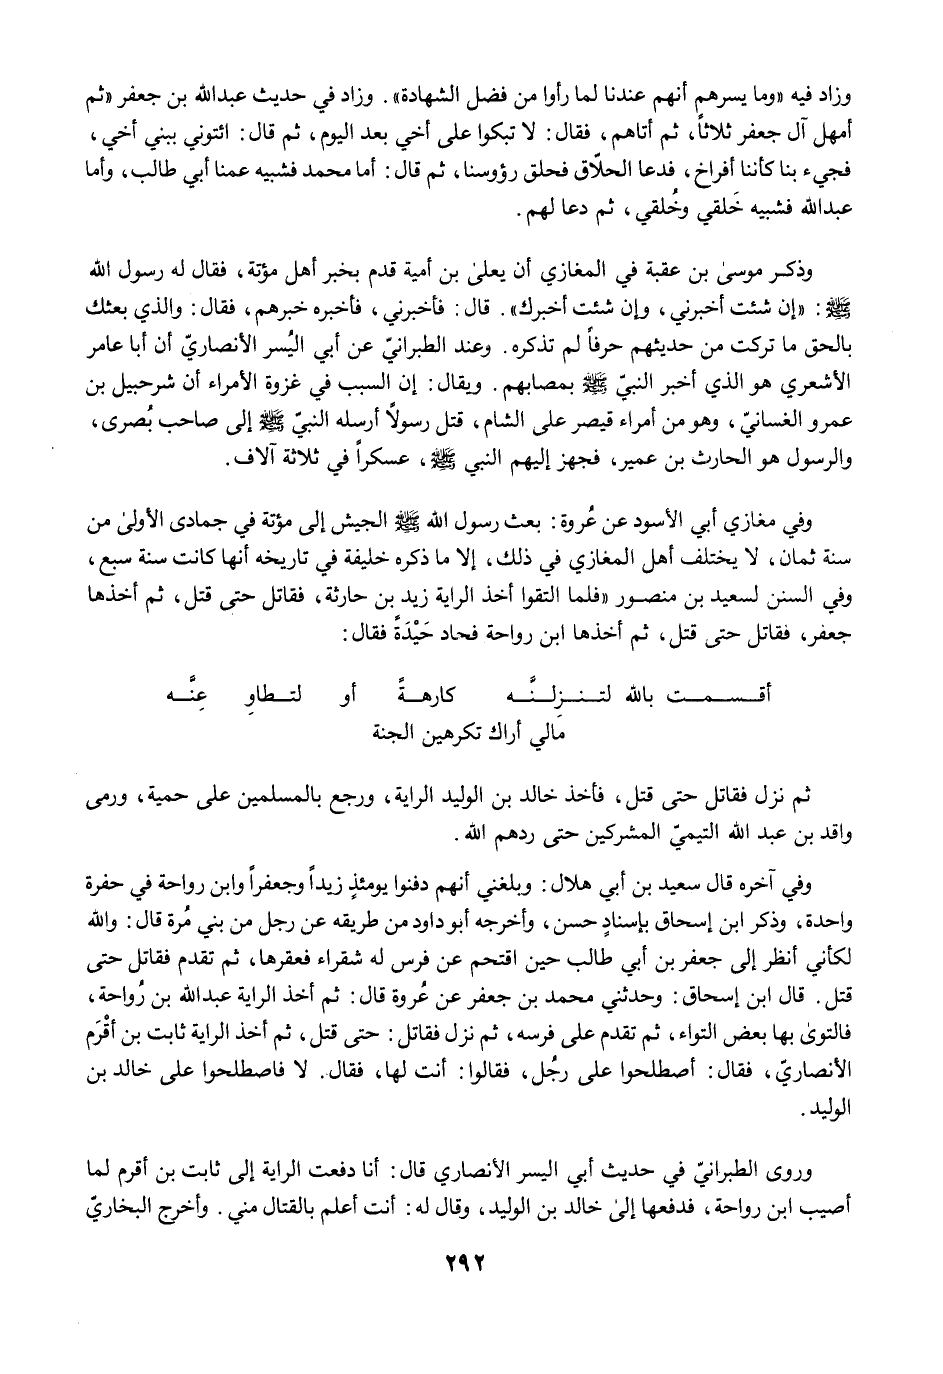 وزاد فيه «وما يسرهم أنهم عندنا لما رأوا من فضل الشهادة». وزاد في حديث عبدالله بن جعفر «ثم
أمهل آل جعفر ثلاثاً، ثم أتاهم، فقال: لا تبكوا على أخي بعد اليوم، ثم قال: ائتوني ببني أخي،
فجيء بنا كأننا أفراخ، فدعا الحلّاق فحلق رؤوسنا، ثم قال: أما محمد فشبيه عمنا أبي طالب، وأما
عبدالله فشبيه خَلقي وخُلقي، ثم دعا لهم.
وذكر موسىٰ بن عقبة في المغازي أن يعلىٰ بن أمية قدم بخبر أهل مؤتة، فقال له رسول الله
ﷺ: «إن شئت أخبرني، وإن شئت أخبرك». قال: فأخبرني، فأخبره خبرهم، فقال: والذي بعثك
بالحق ما تركت من حديثهم حرفاً لم تذكره. وعند الطبرانيّ عن أبي اليُسر الأنصاريّ أن أبا عامر
الأشعري هو الذي أخبر النبيّ ﷺ بمصابهم. ويقال: إن السبب في غزوة الأمراء أن شرحبيل بن
عمرو الغسانيّ، وهو من أمراء قيصر على الشام، قتل رسولاً أرسله النبيّ ﷺ إلى صاحب بُصرى،
والرسول هو الحارث بن عمير، فجهز إليهم النبي ﷺ، عسكراً في ثلاثة آلاف.
وفي مغازي أبي الأسود عن عُروة: بعث رسول الله ﷺ الجيش إلى مؤتة في جمادى الأولىٰ من
سنة ثمان، لا يختلف أهل المغازي في ذلك، إلا ما ذكره خليفة في تاريخه أنها كانت سنة سبع،
وفي السنن لسعيد بن منصور «فلما التقوا أخذ الراية زيد بن حارثة، فقاتل حتى قتل، ثم أخذها
جعفر، فقاتل حتى قتل، ثم أخذها ابن رواحة فحاد حَيْدَةً فقال:
أقسمت بالله لتنزلنَّه كارهةً أو لتطاوِعِنَّه
مَالي أراك تكرهين الجنة
ثم نزل فقاتل حتى قتل، فأخذ خالد بن الوليد الراية، ورجع بالمسلمين على حمية، ورمى
واقد بن عبد الله التيميّ المشركين حتى ردهم الله.
وفي آخره قال سعيد بن أبي هلال: وبلغني أنهم دفنوا يومئذٍ زيداً وجعفراً وابن رواحة في حفرة
واحدة، وذكر ابن إسحاق بإسنادٍ حسن، وأخرجه أبو داود من طريقه عن رجل من بني مُرة قال: والله
لكأني أنظر إلى جعفر بن أبي طالب حين اقتحم عن فرس له شقراء فعقرها، ثم تقدم فقاتل حتى
قتل. قال ابن إسحاق: وحدثني محمد بن جعفر عن عُروة قال: ثم أخذ الراية عبدالله بن رُواحة،
فالتوىٰ بها بعض التواء، ثم تقدم على فرسه، ثم نزل فقاتل: حتى قتل، ثم أخذ الراية ثابت بن أقْرَم
الأنصاريّ، فقال: أصطلحوا على رجُل، فقالوا: أنت لها، فقال. لا فاصطلحوا على خالد بن
الوليد.
وروى الطبرانيّ في حديث أبي اليسر الأنصاري قال: أنا دفعت الراية إلى ثابت بن أقرم لما
أصيب ابن رواحة، فدفعها إلىٰ خالد بن الوليد، وقال له: أنت أعلم بالقتال مني. وأخرج البخاريّ
٢٩٢